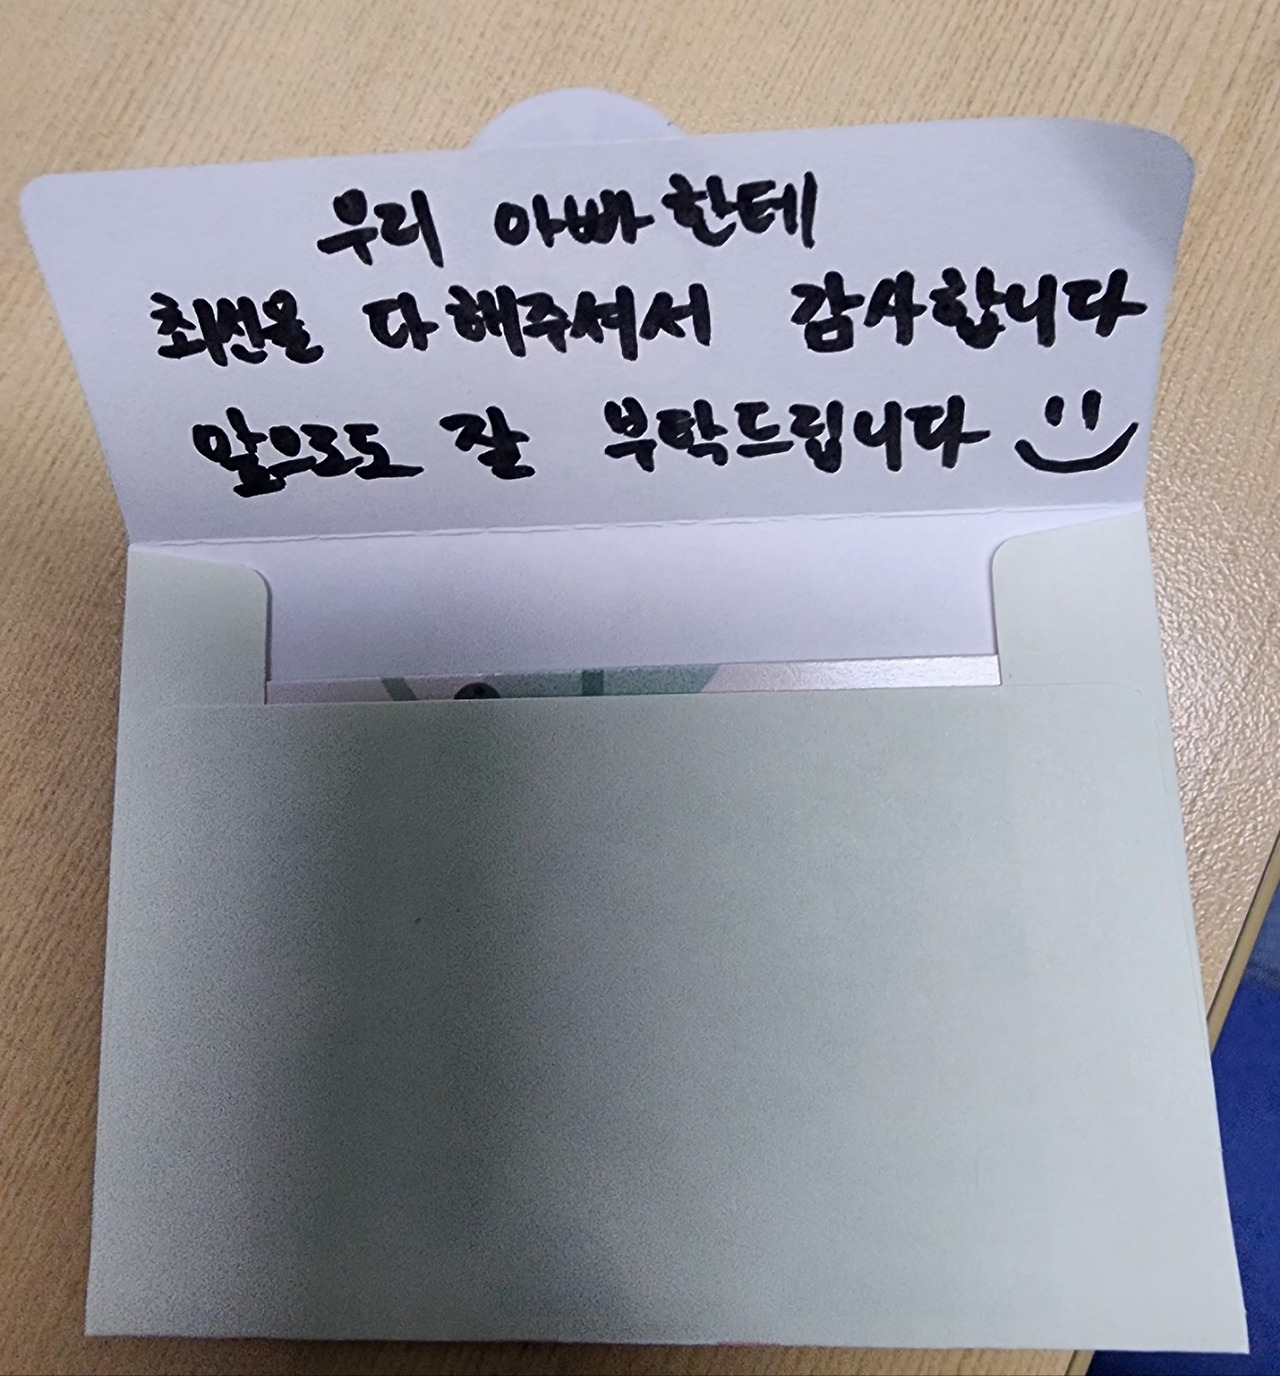 우리 아빠한테
최선을 다해주셔서 감사합니다
앞으로도 잘 부탁드립니다